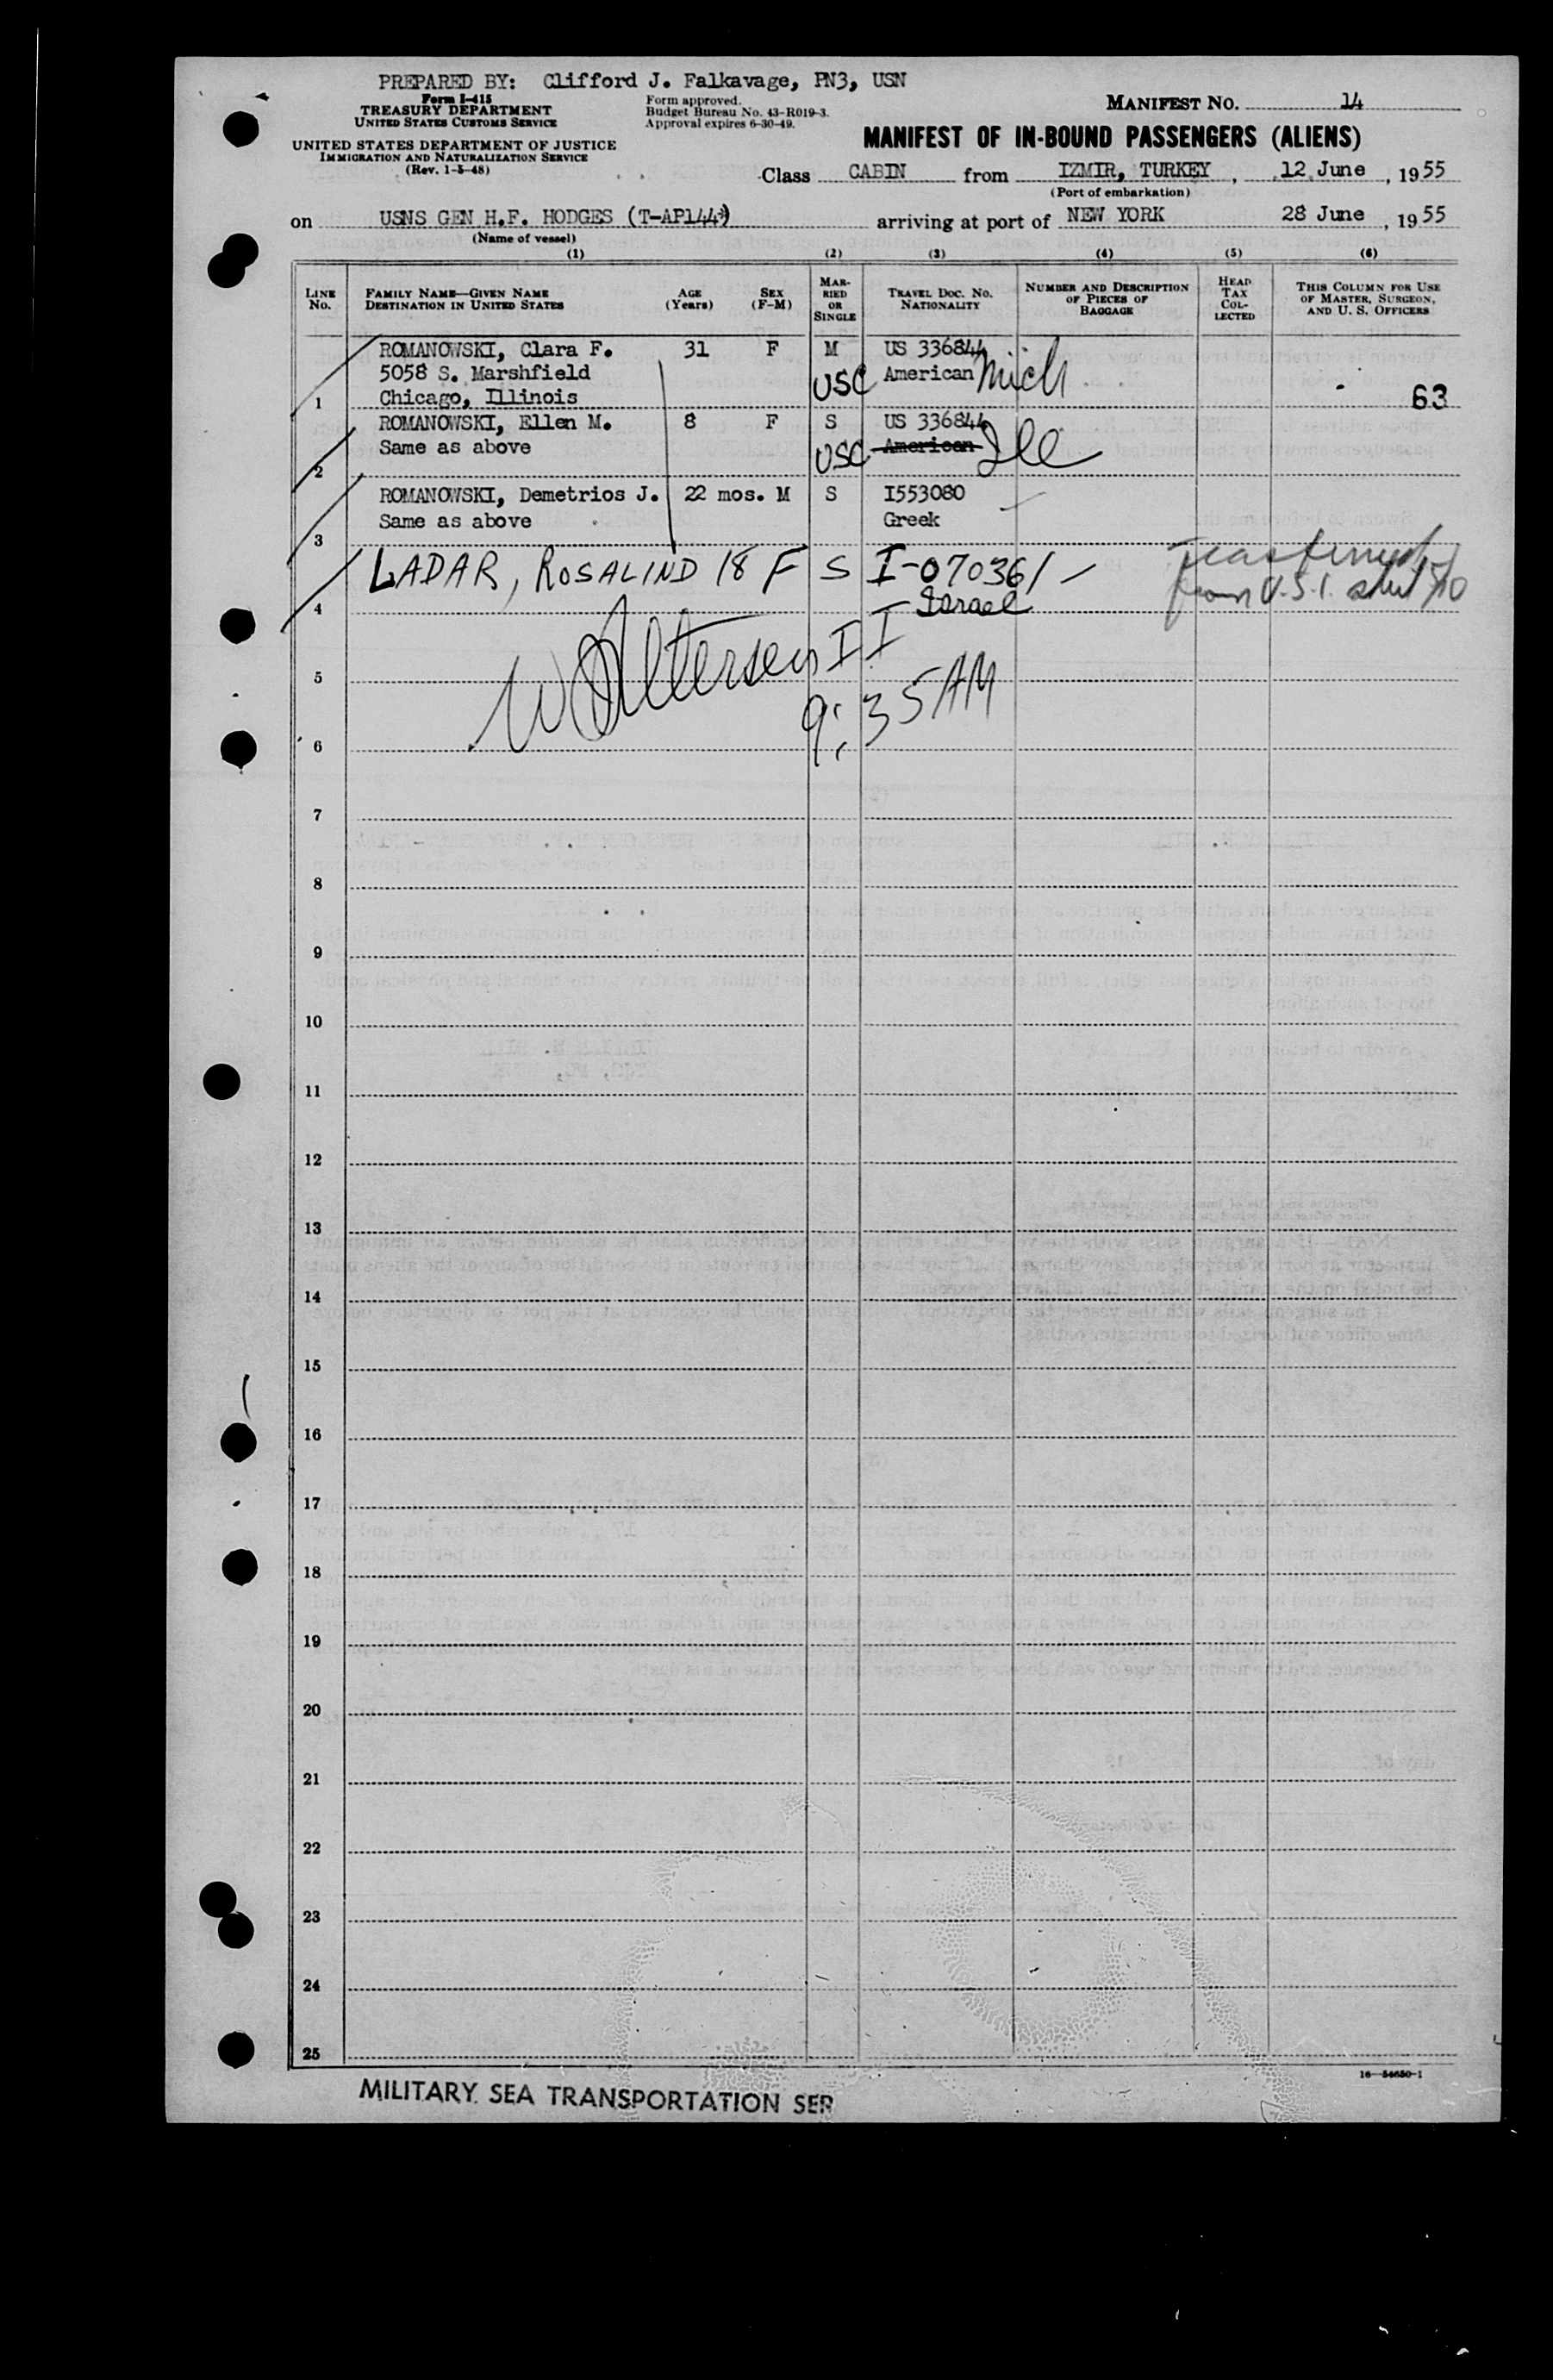 PREPARED BY: Clifford J. Falkavage, PN3, USN
Form I-415
TREASURY DEPARTMENT
UNITED STATES CUSTOMS SERVICE
Form approved.
Budget Bureau No. 43-R019-3.
Approval expires 6-30-49.
MANIFEST NO. 14
UNITED STATES DEPARTMENT OF JUSTICE
IMMIGRATION AND NATURALIZATION SERVICE
(Rev. 1-5-48)
MANIFEST OF IN-BOUND PASSENGERS (ALIENS)
Class CABIN from IZMIR, TURKEY, 12 June, 1955
(Port of embarkation)
on USNS GEN H.F. HODGES (T-AP144) arriving at port of NEW YORK 28 June, 1955
(Name of vessel)
(1) (2) (3) (4) (5) (6)
LINE No.
FAMILY NAME—GIVEN NAME
DESTINATION IN UNITED STATES
AGE (Years)
SEX (F-M)
MARRIED OR SINGLE
TRAVEL DOC. NO.
NATIONALITY
NUMBER AND DESCRIPTION OF PIECES OF BAGGAGE
HEAD TAX COLLECTED
THIS COLUMN FOR USE OF MASTER, SURGEON, AND U. S. OFFICERS
ROMANOWSKI, Clara F. 31 F M US 336844
5058 S. Marshfield USC American Mich
1 Chicago, Illinois 63
ROMANOWSKI, Ellen M. 8 F S US 336844
Same as above USC American Ill
2
ROMANOWSKI, Demetrios J. 22 mos. M S I553080
Same as above Greek
3
LADAR, ROSALIND 18 F S I-070361
4 Israel
from U.S.I.
5
II
9:35 AM
6
7
8
9
10
11
12
13
14
15
16
17
18
19
20
21
22
23
24
25
16—54650-1
MILITARY SEA TRANSPORTATION SER